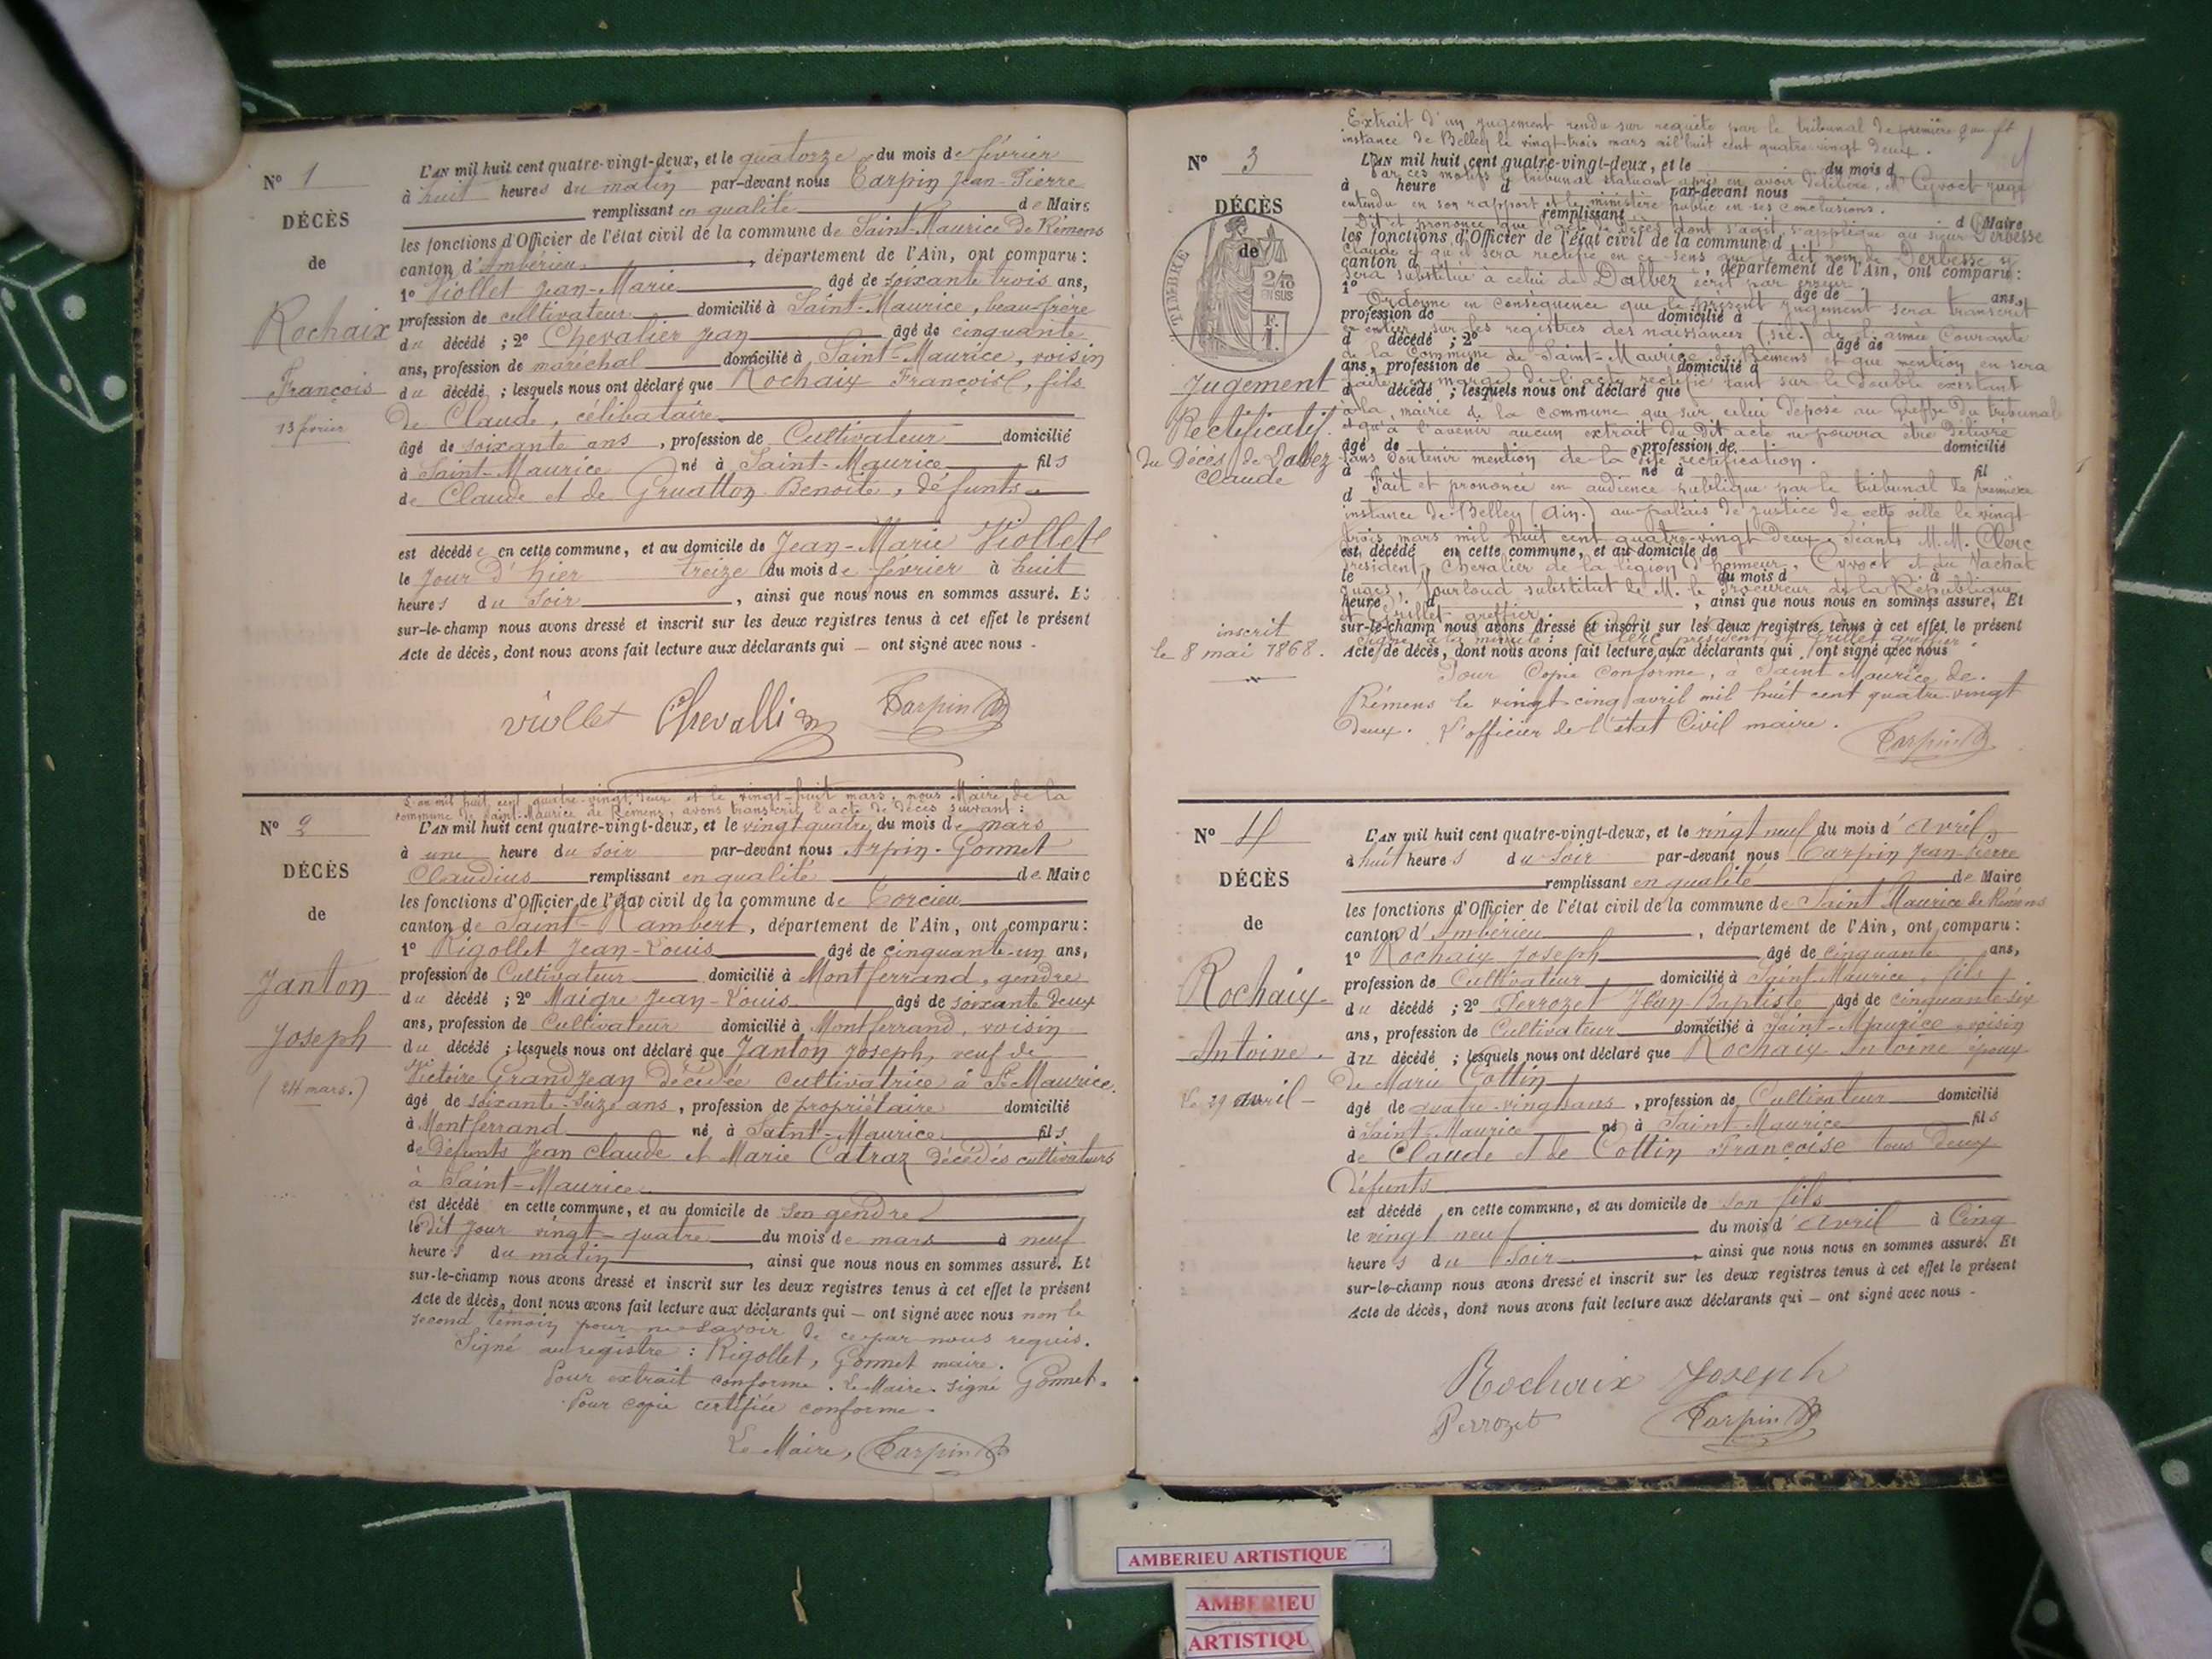 N° 1
DÉCÈS
de
Rochaix
François
13 février
L'AN mil huit cent quatre-vingt-deux, et le quatorze du mois de février
à huit heures du matin par-devant nous Tarpin Jean-Pierre
remplissant en qualité de Maire
les fonctions d'Officier de l'état civil de la commune de Saint-Maurice de Rémens
canton d'Ambérieu, département de l'Ain, ont comparu :
1° Viollet Jean-Marie âgé de soixante trois ans,
profession de cultivateur domicilié à Saint-Maurice, beau-frère
du décédé ; 2° Chevalier Jean âgé de cinquante
ans, profession de maréchal domicilié à Saint-Maurice, voisin
du décédé ; lesquels nous ont déclaré que Rochaix François, fils
de Claude, célibataire
âgé de soixante ans, profession de Cultivateur domicilié
à Saint-Maurice né à Saint-Maurice fils
de Claude et de Gruatton Benoite, défunts
est décédé en cette commune, et au domicile de Jean-Marie Viollet
le jour d'hier treize du mois de février à huit
heures du soir, ainsi que nous nous en sommes assuré. Et
sur-le-champ nous avons dressé et inscrit sur les deux registres tenus à cet effet le présent
Acte de décès, dont nous avons fait lecture aux déclarants qui — ont signé avec nous -
Viollet Chevallier Tarpin
N° 2
DÉCÈS
de
Janton
Joseph
(24 mars.)
L'an mil huit cent quatre-vingt deux et le vingt-huit mars, nous Maire de la
commune de Saint-Maurice de Rémens, avons transcrit l'acte de décès suivant :
L'AN mil huit cent quatre-vingt-deux, et le vingt quatre du mois de mars
à une heure du soir par-devant nous Arpin-Gonnet
Claudius remplissant en qualité de Maire
les fonctions d'Officier de l'état civil de la commune de Torcieu
canton de Saint-Rambert, département de l'Ain, ont comparu :
1° Rigollet Jean-Louis âgé de cinquante-un ans,
profession de Cultivateur domicilié à Montferrand, gendre
du décédé ; 2° Maigre Jean-Louis âgé de soixante deux
ans, profession de Cultivateur domicilié à Montferrand, voisin
du décédé ; lesquels nous ont déclaré que Janton Joseph, veuf de
Victoire Grandjean décédée cultivatrice à St Maurice.
âgé de soixante-seize ans, profession de propriétaire domicilié
à Montferrand né à Saint-Maurice fils
de défunts Jean Claude et Marie Catraz décédés cultivateurs
à Saint-Maurice
est décédé en cette commune, et au domicile de son gendre
le dit jour vingt-quatre du mois de mars à neuf
heures du matin, ainsi que nous nous en sommes assuré. Et
sur-le-champ nous avons dressé et inscrit sur les deux registres tenus à cet effet le présent
Acte de décès, dont nous avons fait lecture aux déclarants qui — ont signé avec nous non le
second témoin pour ne savoir de ce par nous requis.
Signé au registre : Rigollet, Gonnet maire.
Pour extrait conforme. Le Maire. signé Gonnet.
Pour copie certifiée conforme.
Le Maire, Tarpin
Extrait d'un jugement rendu sur requête par le tribunal de première
instance de Belley le vingt-trois mars mil huit cent quatre-vingt deux.
N° 3
DÉCÈS
de
TIMBRE
2/10
EN SUS
F.
1.
Jugement
Rectificatif
du Décès de Dalbez
Claude
inscrit
le 8 mai 1868.
L'AN mil huit cent quatre-vingt-deux, et le du mois d
Par ces motifs le tribunal statuant après en avoir délibéré, Cyvoct juge
à heure d par-devant nous
entendu en son rapport et le ministère public en ses conclusions.
remplissant d Maire
Dit et prononce que l'acte de décès dont s'agit, s'applique au sieur Derbesse
les fonctions d'Officier de l'état civil de la commune d
Claude et qu'il sera rectifié en ce sens que le dit nom de Derbesse
canton d , département de l'Ain, ont comparu :
sera substitué à celui de Dalbez écrit par erreur
1° âgé de ans,
Ordonne en conséquence que le présent jugement sera transcrit
profession de domicilié à
en entier sur les registres des naissances (sic.) de l'année Courante
d décédé ; 2° âgé de
de la Commune de Saint-Maurice de Rémens et que mention en sera
ans, profession de domicilié à
faite en marge de l'acte rectifié tant sur le double existant
d décédé ; lesquels nous ont déclaré que
à la mairie de la commune que sur celui déposé au Greffe du tribunal
et qu'à l'avenir aucun extrait du dit acte ne pourra être délivré
âgé de profession de domicilié
sans contenir mention de la dite rectification.
à né à fil
Fait et prononcé en audience publique par le tribunal de première
d
instance de Belley (Ain.) au palais de justice de cette ville le vingt
trois mars mil huit cent quatre-vingt deux. Séants M.M. Clerc
est décédé en cette commune, et au domicile de
président, Chevalier de la légion d'honneur, Cyvoct et du Vachat
le du mois d à
juges, Jourloud substitut de M. le Procureur de la République
heure d , ainsi que nous nous en sommes assuré. Et
et Grillet greffier.
sur-le-champ nous avons dressé et inscrit sur les deux registres tenus à cet effet le présent
signé à la minute : Clerc président et Grillet greffier.
Acte de décès, dont nous avons fait lecture aux déclarants qui ont signé avec nous
Pour Copie Conforme, à Saint Maurice de.
Rémens le vingt cinq avril mil huit cent quatre-vingt
deux. L'officier de l'état Civil maire.
Tarpin
N° 4
DÉCÈS
de
Rochaix
Antoine.
Le 29 avril -
L'AN mil huit cent quatre-vingt-deux, et le vingt neuf du mois d'avril
à huit heures du soir par-devant nous Tarpin Jean-Pierre
remplissant en qualité de Maire
les fonctions d'Officier de l'état civil de la commune de Saint Maurice de Rémens
canton d'Ambérieu, département de l'Ain, ont comparu :
1° Rochaix Joseph âgé de cinquante ans,
profession de Cultivateur domicilié à Saint-Maurice, fils
du décédé ; 2° Perrozet Jean-Baptiste âgé de cinquante-six
ans, profession de Cultivateur domicilié à Saint-Maurice voisin
du décédé ; lesquels nous ont déclaré que Rochaix Antoine époux
de Marie Cottin
âgé de quatre-vingt ans, profession de Cultivateur domicilié
à Saint Maurice né à Saint Maurice fils
de Claude et de Cottin Françoise tous deux
défunts
est décédé en cette commune, et au domicile de son fils
le vingt neuf du mois d'avril à Cinq
heures du soir, ainsi que nous nous en sommes assuré. Et
sur-le-champ nous avons dressé et inscrit sur les deux registres tenus à cet effet le présent
Acte de décès, dont nous avons fait lecture aux déclarants qui — ont signé avec nous -
Rochaix Joseph
Perrozet Tarpin
AMBERIEU ARTISTIQUE
AMBERIEU
ARTISTIQU